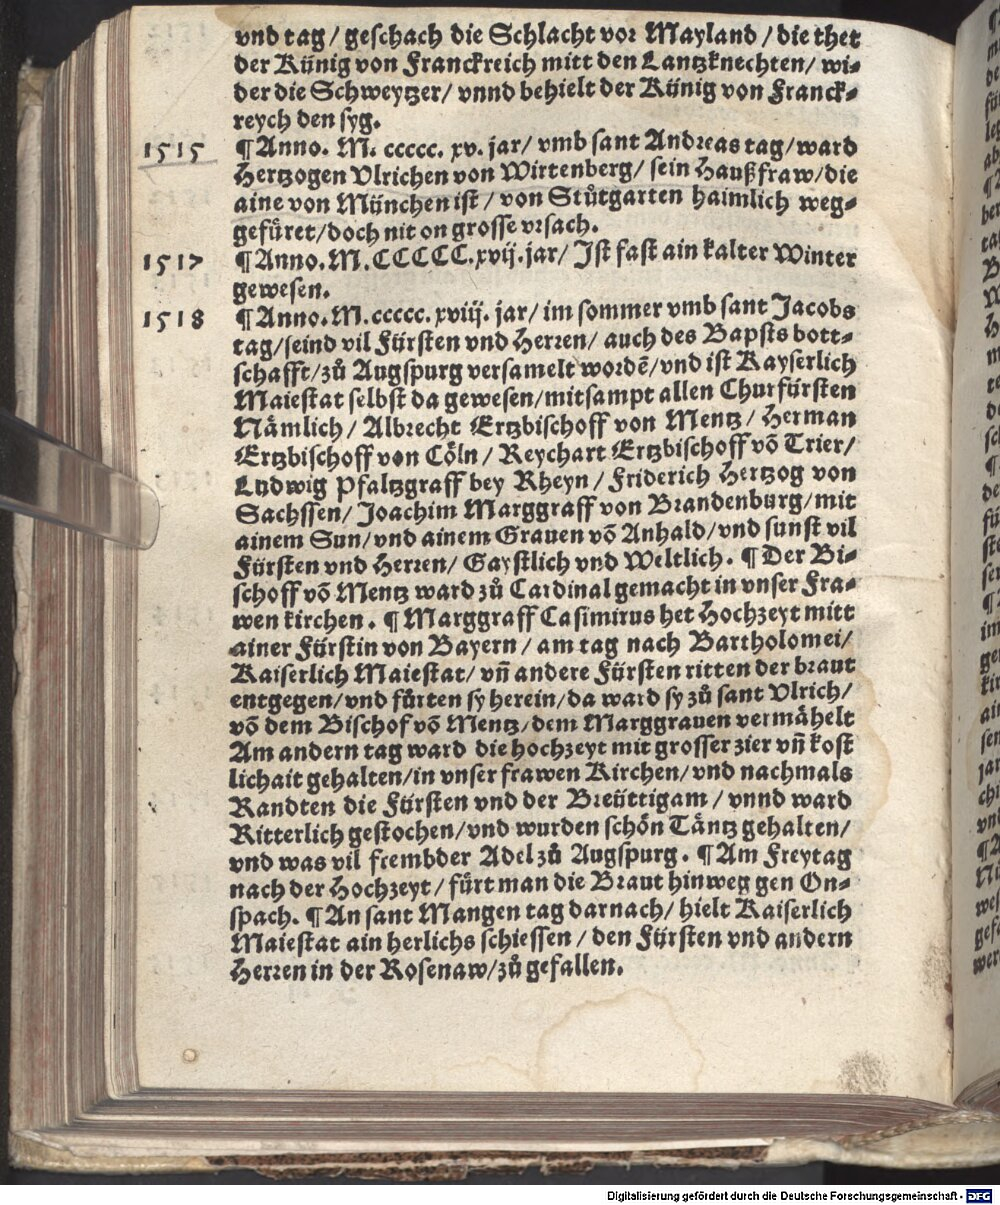 vnd tag / geschach die Schlacht vor Mayland / die thet
der Künig von Franckreich mitt den Lantzknechten / wi-
der die Schweytzer / vnnd behielt der Künig von Franck-
reych den syg.
1515 ¶ Anno. M. ccccc. xv. jar / vmb sant Andreas tag / ward
Hertzogen Vlrichen von Wirtenberg / sein Haußfraw / die
aine von München ist / von Stůtgarten haimlich weg-
gefüret / doch nit on grosse vrsach.
1517 ¶ Anno. M. CCCCC. xvij. jar / Ist fast ain kalter Winter
gewesen.
1518 ¶ Anno. M. ccccc. xviij. jar / im sommer vmb sant Jacobs
tag / seind vil Fürsten vnd Herren / auch des Bapsts bott-
schafft / zů Augspurg versamelt wordē / vnd ist Kayserlich
Maiestat selbst da gewesen / mitsampt allen Churfürsten
Nämlich / Albrecht Ertzbischoff von Mentz / Herman
Ertzbischoff von Cöln / Reychart Ertzbischoff võ Trier /
Ludwig Pfaltzgraff bey Rheyn / Friderich Hertzog von
Sachssen / Joachim Marggraff von Brandenburg / mit
ainem Sun / vnd ainem Grauen võ Anhald / vnd sunst vil
Fürsten vnd Herren / Gaystlich vnd Weltlich. ¶ Der Bi-
schoff võ Mentz ward zů Cardinal gemacht in vnser Fra-
wen kirchen. ¶ Marggraff Casimirus het Hochzeyt mitt
ainer Fürstin von Bayern / am tag nach Bartholomei /
Kaiserlich Maiestat / vñ andere Fürsten ritten der braut
entgegen / vnd fürten sy herein / da ward sy zů sant Vlrich /
võ dem Bischof võ Mentz / dem Marggrauen vermähelt
Am andern tag ward die hochzeyt mit grosser zier vñ kost
lichait gehalten / in vnser frawen Kirchen / vnd nachmals
Randten die Fürsten vnd der Breüttigam / vnnd ward
Ritterlich gestochen / vnd wurden schön Täntz gehalten /
vnd was vil frembder Adel zů Augspurg. ¶ Am Freytag
nach der Hochzeyt / fürt man die Braut hinweg gen On-
spach. ¶ An sant Mangen tag darnach / hielt Kaiserlich
Maiestat ain herlichs schiessen / den Fürsten vnd andern
Herren in der Rosenaw / zů gefallen.
Digitalisierung gefördert durch die Deutsche Forschungsgemeinschaft - DFG